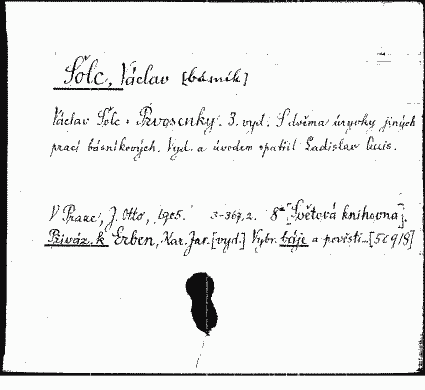 Šolc, Václav [básník]
Václav Šolc: Prvosenky. 3. vyd. S dvěma úryvky jiných
prací básníkových. Vyd. a úvodem opatřil Ladislav Quis.
V Praze, J. Otto, 1905. 3-367, 2. 8° [Světová knihovna].
Přiváz. k Erben, Kar. Jar. [vyd.] Vybr. báje a pověsti... [5 G 918]